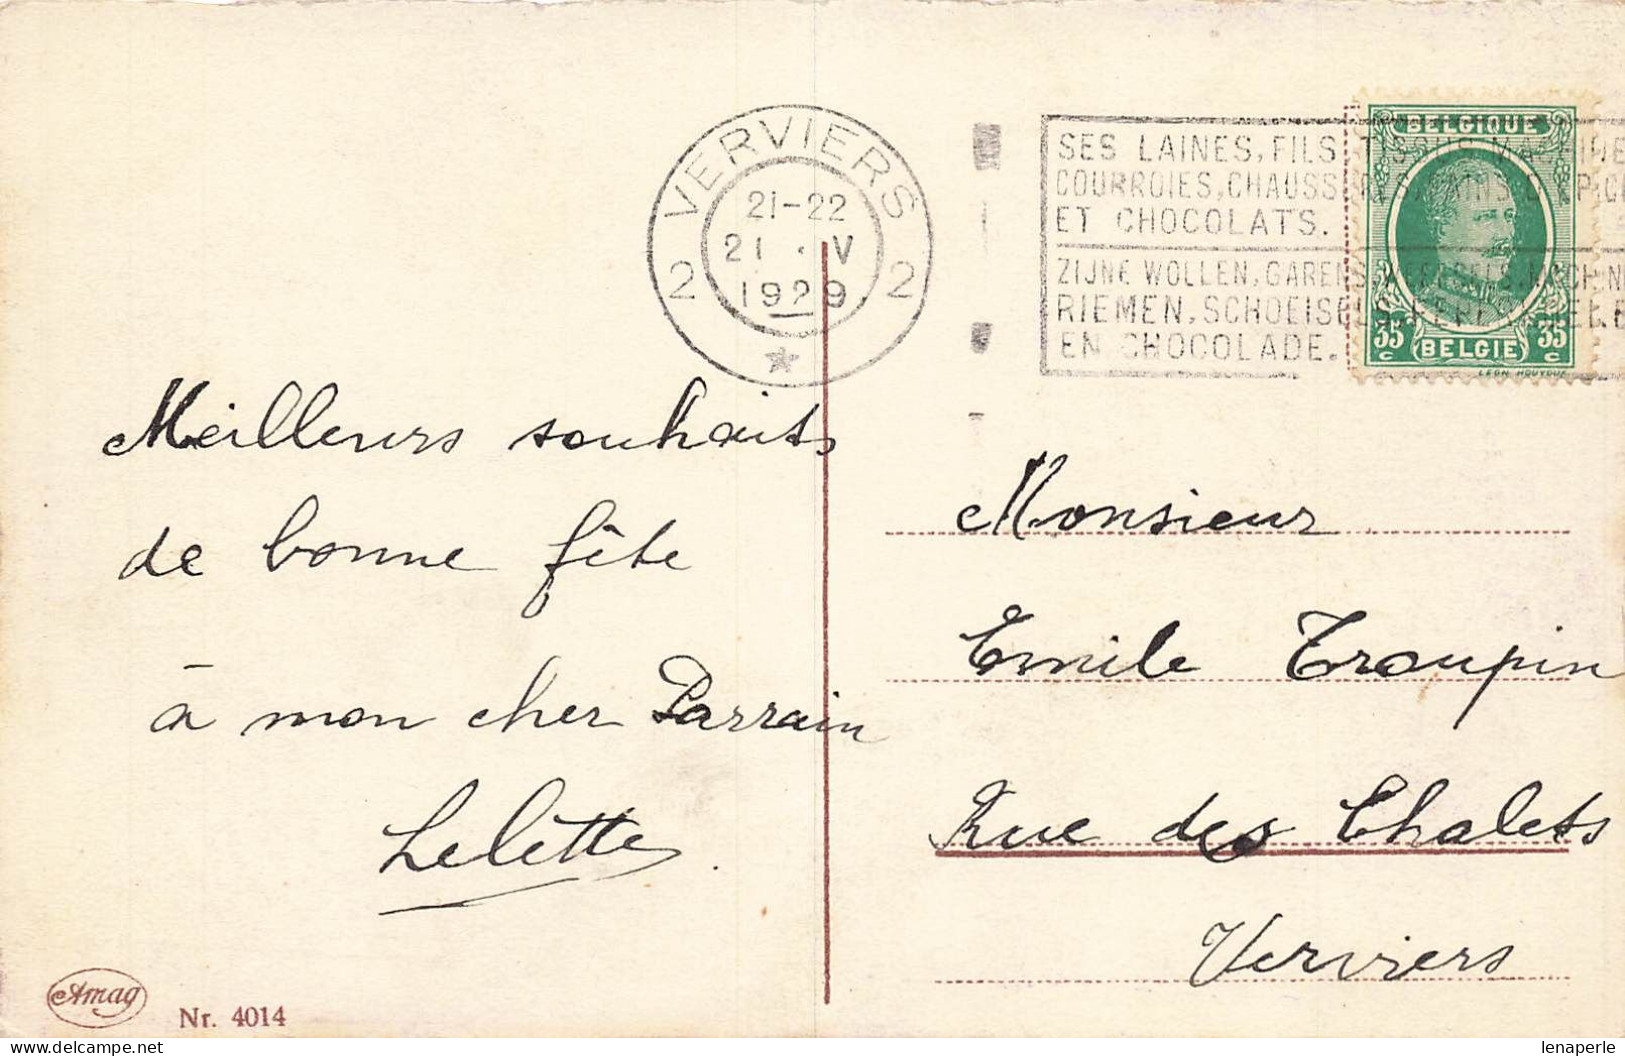 VERVIERS
21-22
21 · V
1929
2 2
SES LAINES, FILS
COURROIES, CHAUSS
ET CHOCOLATS.
ZIJNE WOLLEN, GARENS
RIEMEN, SCHOEISELS
EN CHOCOLADE.
BELGIQUE
35 c 35 c
BELGIE
LEON HOUYOUX
Meilleurs souhaits
de bonne fête
à mon cher Parrain
Lelette.
Monsieur
Emile Troupin
Rue des Chalets
Verviers
Amag
Nr. 4014
www.delcampe.net
lenaperle